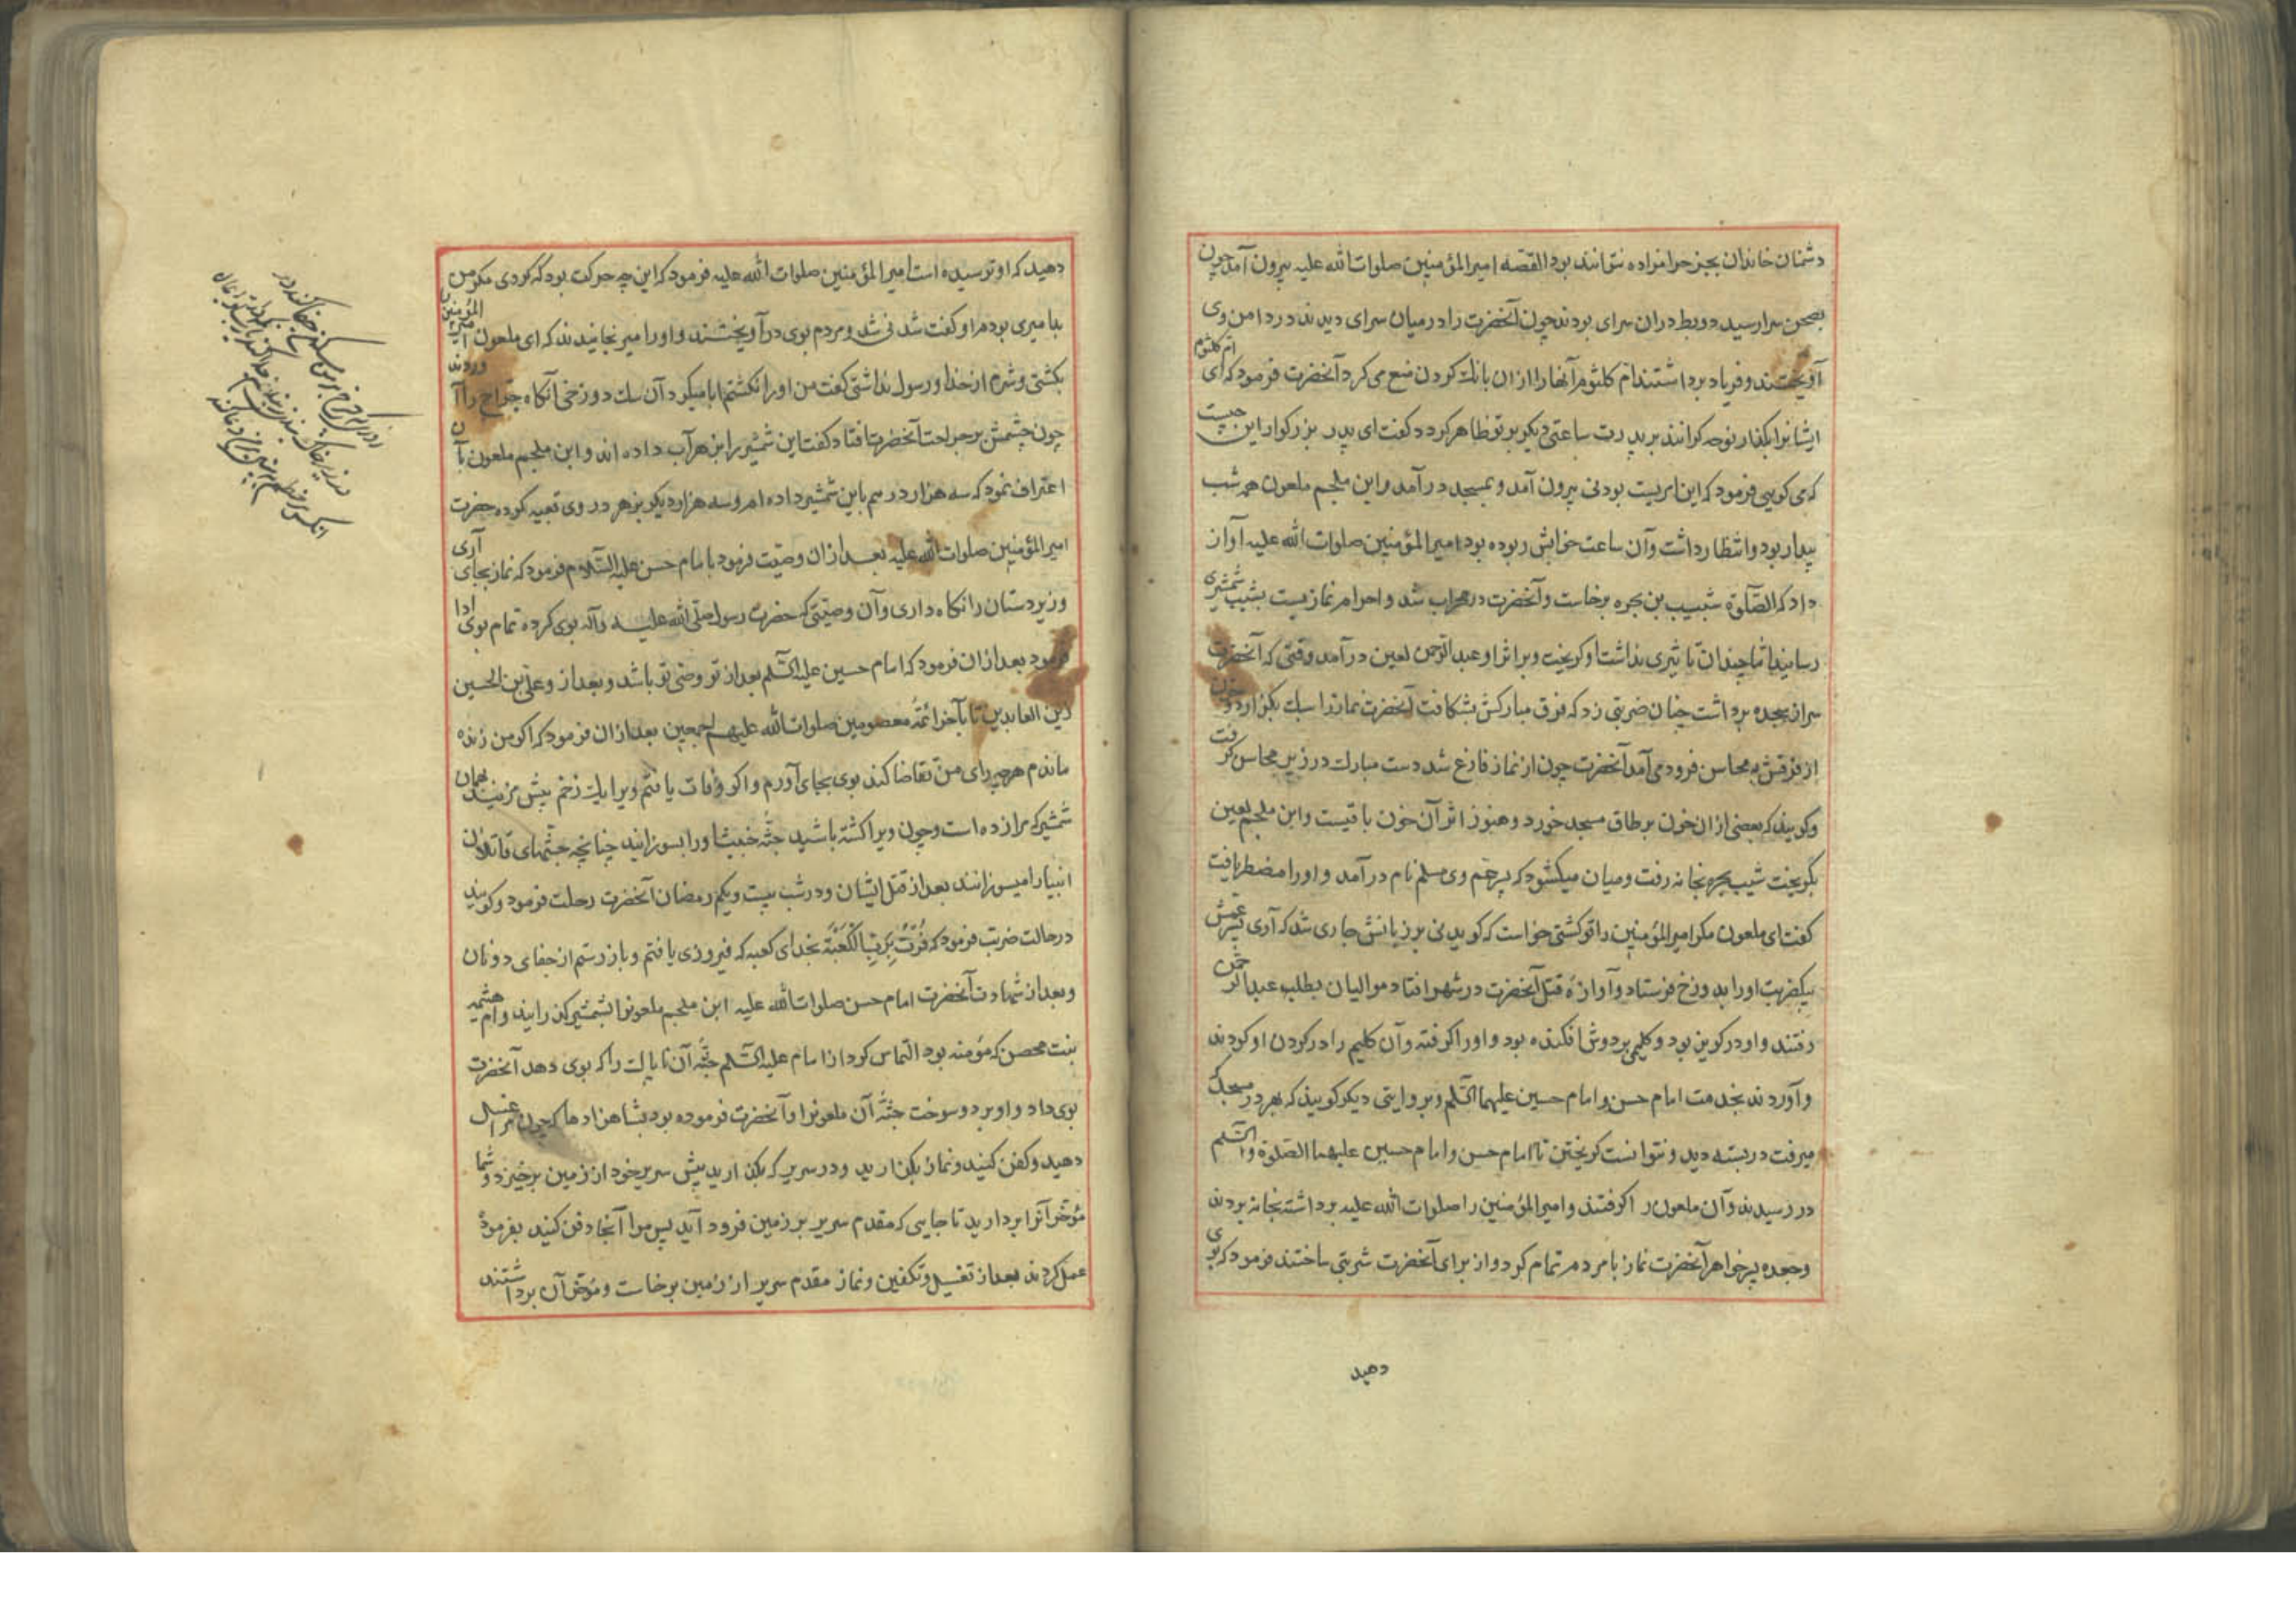 دشمنان خاندان بجز حرامزاده نتوانند بود القصه امیرالمؤمنین صلوات الله علیه بیرون آمد چون
بصحن سرا رسید دو بط دران سرای بودند چون آنحضرت را در میان سرای دیدند در دامن وی
آویختند و فریاد برداشتند ام کلثوم آنها را ازان بانك کردن منع می کرد آنحضرت فرمود که ای ام کلثوم
ایشانرا بکذار نوحه کرانند بر پدرت ساعتی دیکر بر تو ظاهر کردد کفت ای پدر بزرکوار این چیست
که می کویی فرمود که این امریست بودنی بیرون آمد و بمسجد در آمد و ابن ملجم ملعون همه شب
بیدار بود و انتظار داشت و آن ساعت خوابش ربوده بود امیرالمؤمنین صلوات الله علیه آواز
داد که الصّلوة شبیب بن بجره برخاست و آنحضرت در محراب شد و احرام نماز بست شبیب شمشیری
رسانید اما چندان تاثیری نداشت او کریخت و بر اثر او عبدالرحمن لعین در آمد وقتی که آنحضرت
سر از سجده برداشت چنان ضربتی زد که فرق مبارکش بشکافت آنحضرت نماز را سبك بکزارد و خون
از فرقش به محاسن فرود می آمد آنحضرت چون از نماز فارغ شد دست مبارك در زیر محاسن کرفت
و کویند که بعضی ازان خون بر طاق مسجد خورد و هنوز اثر آن خون باقیست و ابن ملجم لعین
بکریخت شبیب بجره بخانه رفت و میان میکشود که پسر عم وی مسلم نام در آمد و او را مضطر یافت
کفت ای ملعون مکر امیرالمؤمنین را تو کشتی خواست که کوید نی بر زبانش جاری شد که آری پسر عمش
بیکضربت او را بدوزخ فرستاد و آوازهٔ قتل آنحضرت در شهر افتاد موالیان بطلب عبدالرحمن
رفتند و او در کریز بود و کلیمی بر دوش افکنده بود و او را کرفته و آن کلیم را در کردن او کردند
و آوردند بخدمت امام حسن و امام حسین علیهما السّلم و بروایتی دیکر کویند که بهر در مسجد که
میرفت در بسته دید و نتوانست کریختن تا امام حسن و امام حسین علیهما الصّلوة والسّلم
در رسیدند و آن ملعون را کرفتند و امیرالمؤمنین را صلوات الله علیه برداشته بخانه بردند
و جعده پسر خواهر آنحضرت نماز با مردم تمام کرد و از برای آنحضرت شربتی ساختند فرمود که بوی
دهید
دهید که او ترسیده است امیرالمؤمنین صلوات الله علیه فرمود که این چه حرکت بود که کردی مکر من
بد امیری بودم او کفت شدنی شد و مردم بوی در آویختند و او را میرنجانیدند که ای ملعون امیرالمؤمنین
بکشتی و شرم از خدا و رسول نداشتی کفت من او را نکشتم ابا میکرد آن سك دوزخی آنکاه جرّاح را آوردند
چون چشمش بر جراحت آنحضرت افتاد کفت این شمشیر را بزهر آب داده اند و ابن ملجم ملعون بآن
اعتراف نمود که سه هزار درهم باین شمشیر داده ام و سه هزار دیکر بزهر در وی تعبیه کرده حضرت
امیرالمؤمنین صلوات الله علیه بعد ازان وصیّت فرمود بامام حسن علیه السّلام فرمود که نماز بجای آری
و زیر دستان را نکاه داری و آن وصیتی که حضرت رسول صلی الله علیه و آله بوی کرده تمام بوی ادا
فرمود بعد ازان فرمود که امام حسین علیه السّلم بعد از تو وصی تو باشد و بعد از و علی بن الحسین
زین العابدین تا بآخر ائمّهٔ معصومین صلوات الله علیهم اجمعین بعد ازان فرمود که اکر من زنده
ماندم هرچه رای من تقاضا کند بوی بجای آورم و اکر وفات یافتم ویرا یك زخم بیش مزنید بهمان
شمشیر که مرا زده است و چون ویرا کشته باشید جثّهٔ خبیث او را بسوزانید چنانچه جثّهای قاتلان
انبیا را میسوزانند بعد از قتل ایشان و در شب بیست و یکم رمضان آنحضرت رحلت فرمود و کویند
در حالت ضربت فرمود که فُزْتُ بِرَبِّ الْكَعْبَة بخدای کعبه که فیروزی یافتم و باز رستم از جفای دونان
و بعد از شهادت آنحضرت امام حسن صلوات الله علیه ابن ملجم ملعونرا بشمشیر کذرانید و ام هشیم
بنت محصن که مؤمنه بود التماس کرد از امام علیه السّلم جثّهٔ آن ناپاك را که بوی دهد آنحضرت
بوی داد و او برد و سوخت جثّهٔ آن ملعونرا و آنحضرت فرموده بود بشاهزادها که چون مرا غسل
دهید و کفن کنید و نماز بکذارید و در سریر که بکذارید پیش سریر خود از زمین برخیزد و شما
مؤخر آنرا بردارید تا جایی که مقدم سریر بر زمین فرود آید پس مرا آنجا دفن کنید بفرمودهٔ
عمل کردند بعد از تغسیل و تکفین و نماز مقدم سریر از زمین برخاست و مؤخر آن برداشتند